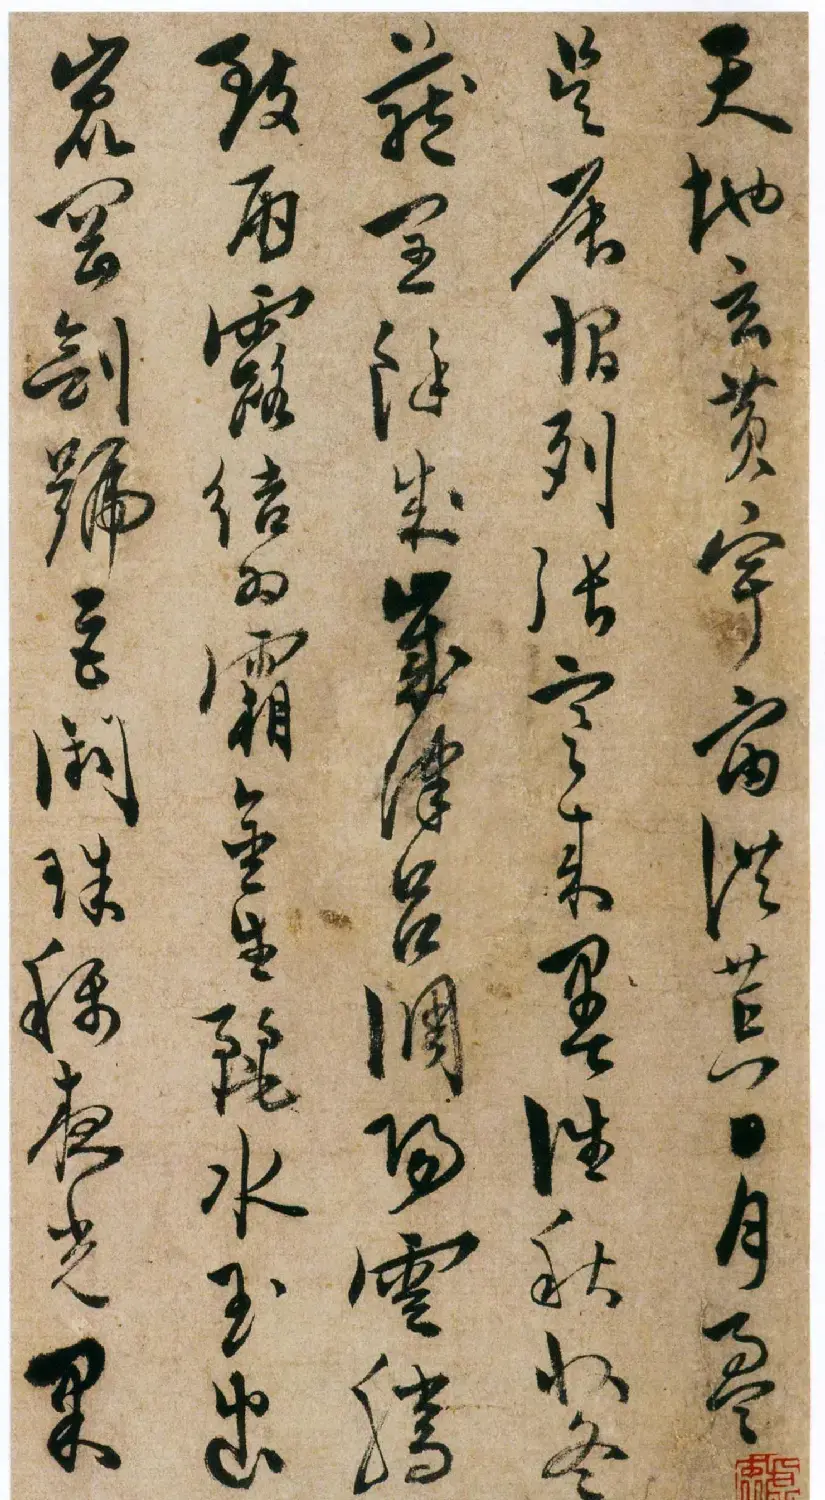 天地玄黃宇宙洪荒日月盈
昃辰宿列張寒來暑往秋收冬
藏閏餘成歲律呂調陽雲騰
致雨露結為霜金生麗水玉出
崑岡劍號巨闕珠稱夜光果